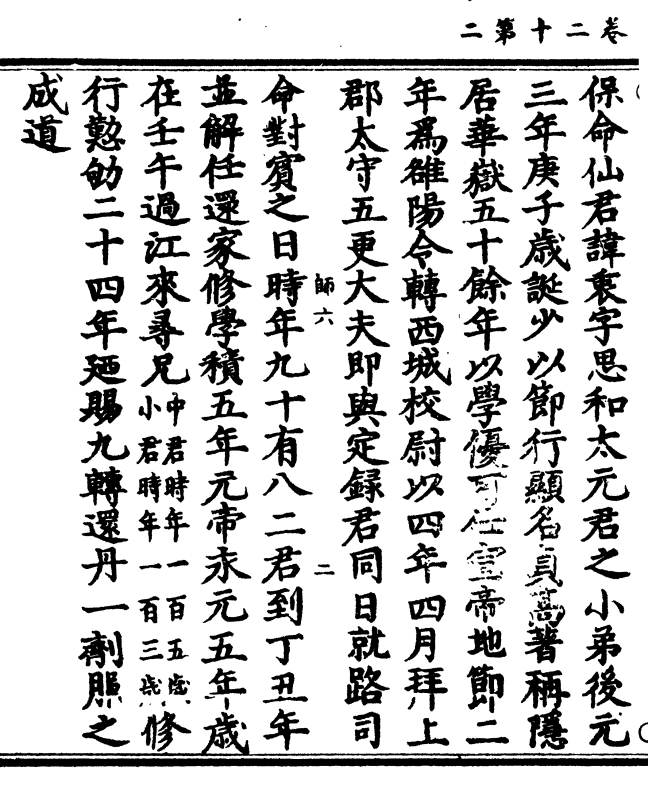 卷二十第二
保命仙君諱衷字思和太元君之小弟後元
三年庚子歲誕少以節行顯名貞高著稱隱
居華嶽五十餘年以學優可仕宣帝地節二
年爲雒陽令轉西城校尉以四年四月拜上
郡太守五更大夫即與定録君同日就路司
師六 二
命對賓之日時年九十有八二君到丁丑年
並解任還家修學積五年元帝永元五年歲
在壬午過江來尋兄中君時年一百五歲小君時年一百三歲修
行懃劬二十四年廼賜九轉還丹一劑服之
成道